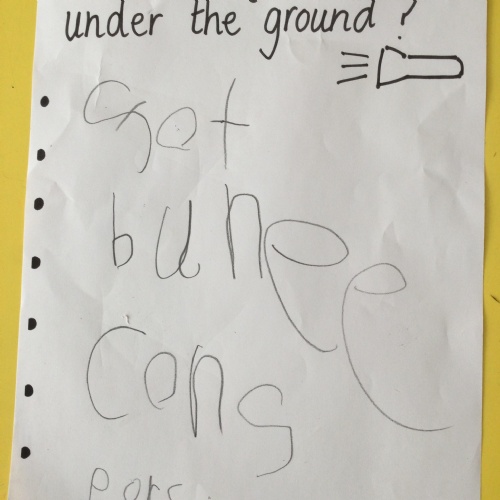 under the ground ?
Got
bunee
Cons